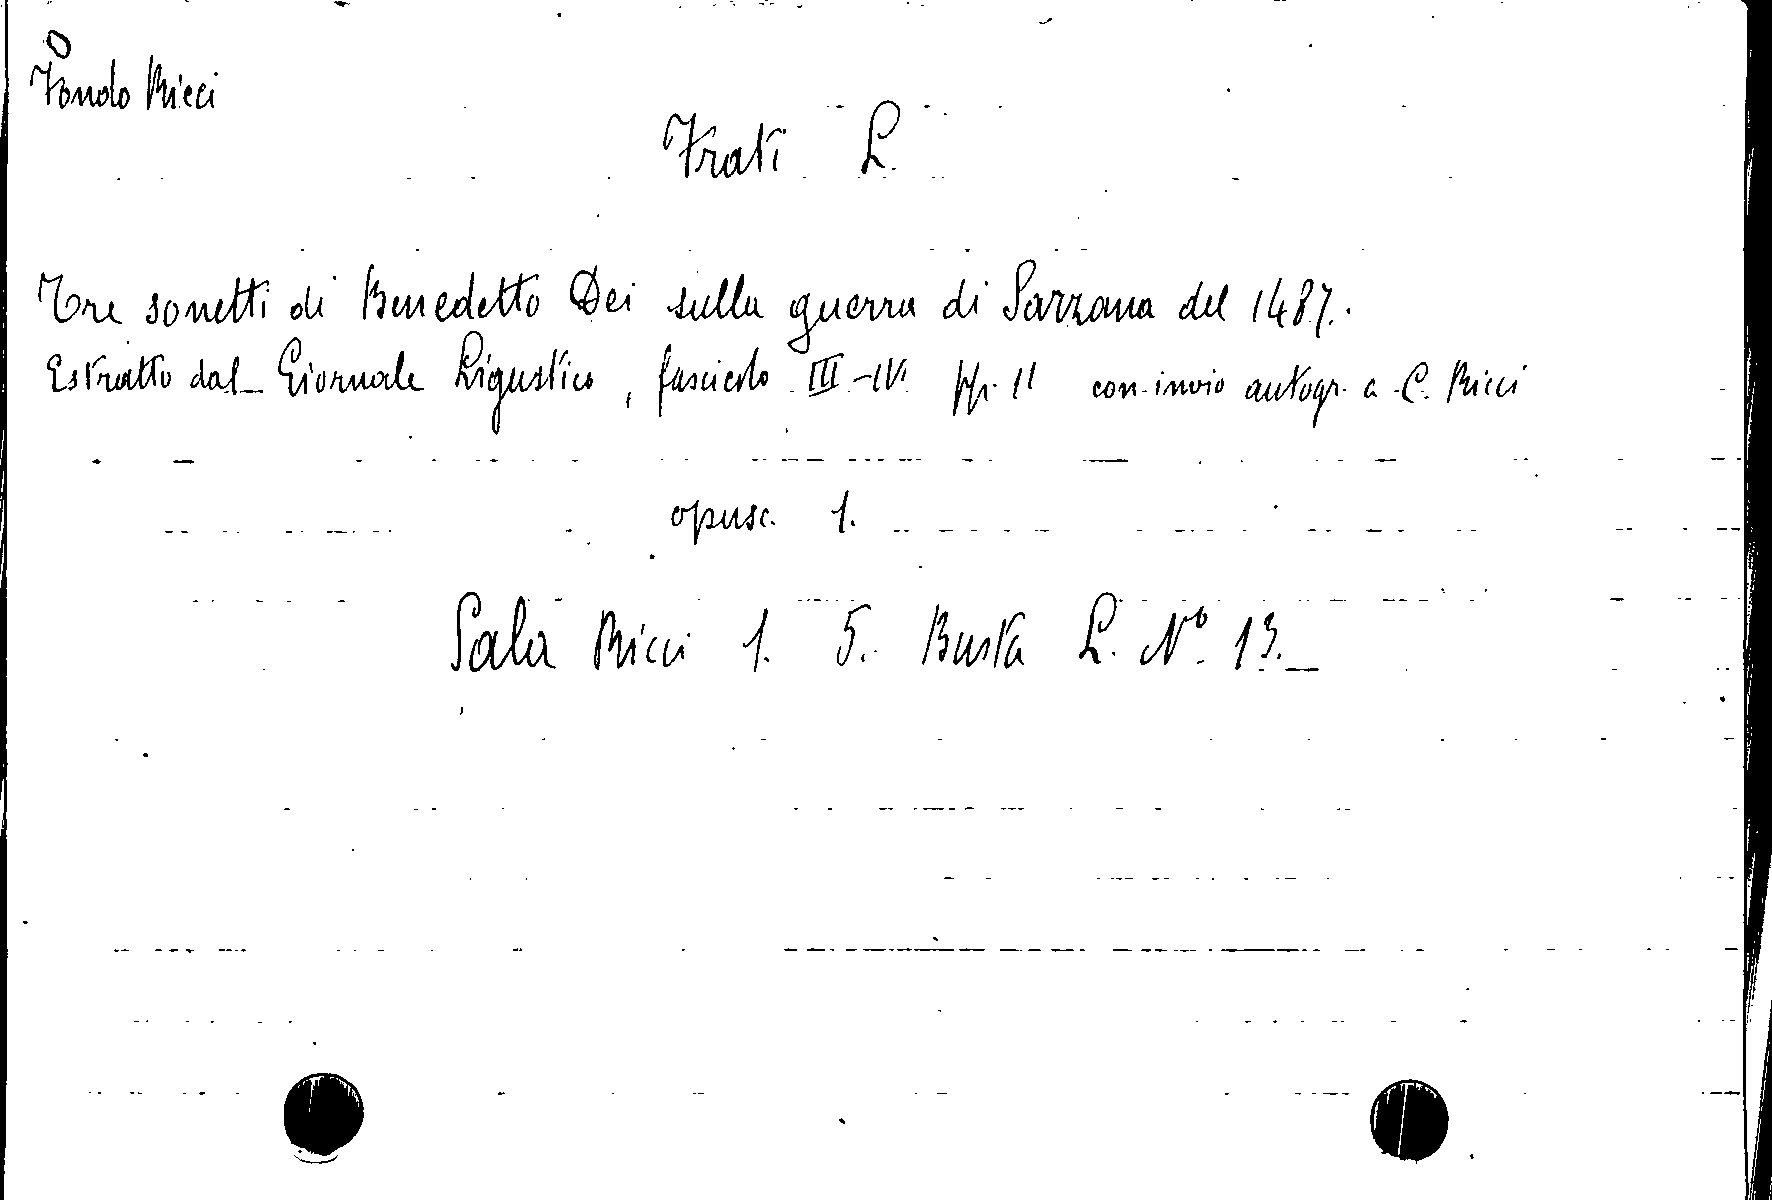 O
Fondo Ricci
Frati L.
Tre sonetti di Benedetto Dei sulla guerra di Sarzana del 1487.
Estratto dal Giornale Ligustico, fascicolo III-IV. pp. 11 con invio autogr. a C. Ricci
opusc. 1.
Sala Ricci 1. 5. Busta L. N° 13.